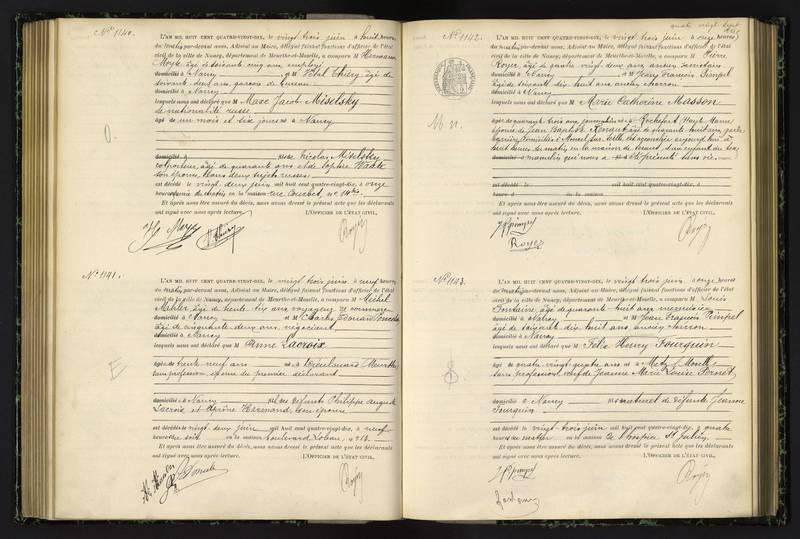 Nº 1140.
L'AN MIL HUIT CENT QUATRE-VINGT-DIX, le vingt trois juin à huit heures
du matin par-devant nous, Adjoint au Maire, délégué faisant fonctions d'officier de l'état
civil de la ville de Nancy, département de Meurthe-et-Moselle, a comparu M Hermann
âgé de soixante cinq ans, employé
domicilié à Nancy et M Vital Thiéry, âgé de
soixante deux ans, garçon de bureau
domicilié à Nancy
lesquels nous ont déclaré que M Maxe Jacob Miselsky
de nationalité russe
âgé de un mois et six jours né à Nancy
fils de Nicolas Miselsky
colporteur, âgé de quarante ans et de Sophie
son épouse, tous deux sujets russes
est décédé le vingt deux juin mil huit cent quatre-vingt-dix, à onze
heures du matin en la maison rue Courbet, nº 14 bis.
Et après nous être assuré du décès, nous avons dressé le présent acte que les déclarants
ont signé avec nous après lecture. L'OFFICIER DE L'ÉTAT CIVIL,
Nº 1141.
L'AN MIL HUIT CENT QUATRE-VINGT-DIX, le vingt trois juin à neuf heures
du matin par-devant nous, Adjoint au Maire, délégué faisant fonctions d'officier de l'état
civil de la ville de Nancy, département de Meurthe-et-Moselle, a comparu M Michel
âgé de trente six ans, voyageur de commerce
domicilié à Nancy et M Charles Edouard
âgé de cinquante deux ans, négociant
domicilié à Nancy
lesquels nous ont déclaré que M Anne Lacroix
âgée de trente neuf ans née à Dieulouard (Meurthe)
sans profession, épouse du premier déclarant
domicilié à Nancy fille des défunts Philippe Auguste
Lacroix et Hermand, son épouse
est décédée le vingt deux juin mil huit cent quatre-vingt-dix, à neuf
heures du soir en la maison boulevard Lobau, nº 18.
Et après nous être assuré du décès, nous avons dressé le présent acte que les déclarants
ont signé avec nous après lecture. L'OFFICIER DE L'ÉTAT CIVIL,
quatre vingt sept
Nº 1142.
L'AN MIL HUIT CENT QUATRE-VINGT-DIX, le vingt trois juin à onze heures
du matin par-devant nous, Adjoint au Maire, délégué faisant fonctions d'officier de l'état
civil de la ville de Nancy, département de Meurthe-et-Moselle, a comparu M Pierre
Royer, âgé de quatre vingt deux ans, ancien secrétaire
domicilié à Nancy et M Jean François Pimpel
âgé de soixante dix huit ans, ancien charron
domicilié à Nancy
lesquels nous ont déclaré que M Marie Catherine Masson
âgée de quarante trois ans, journalière née à Rochefort Haute Marne
épouse de Jean Baptiste âgé de cinquante huit ans
est accouchée aujourd'hui à
huit heures du matin, en la maison du tenant, d'un enfant du sexe
masculin qui nous a été présenté sans vie.
est décédé le mil huit cent quatre-vingt-dix, à
heures d en la maison
Et après nous être assuré du décès, nous avons dressé le présent acte que les déclarants
ont signé avec nous après lecture. L'OFFICIER DE L'ÉTAT CIVIL,
Royer
Nº 1143.
L'AN MIL HUIT CENT QUATRE-VINGT-DIX, le vingt trois juin à onze heures
du matin par-devant nous, Adjoint au Maire, délégué faisant fonctions d'officier de l'état
civil de la ville de Nancy, département de Meurthe-et-Moselle, a comparu M Louis
Fontaine, âgé de quarante huit ans, menuisier
domicilié à Nancy et M Jean François Pimpel
âgé de soixante dix huit ans, ancien charron
domicilié à Nancy
lesquels nous ont déclaré que M Félix Henry Fourquin
âgé de quatre vingt quatre ans né à Metz (Moselle)
sans profession, veuf de Jeanne Marie Louise
domicilié à Nancy fils naturel de défunte Jeanne
Fourquin
est décédé le vingt trois juin mil huit cent quatre-vingt-dix, à quatre
heures du matin en la maison de l'hospice St Julien.
Et après nous être assuré du décès, nous avons dressé le présent acte que les déclarants
ont signé avec nous après lecture. L'OFFICIER DE L'ÉTAT CIVIL,